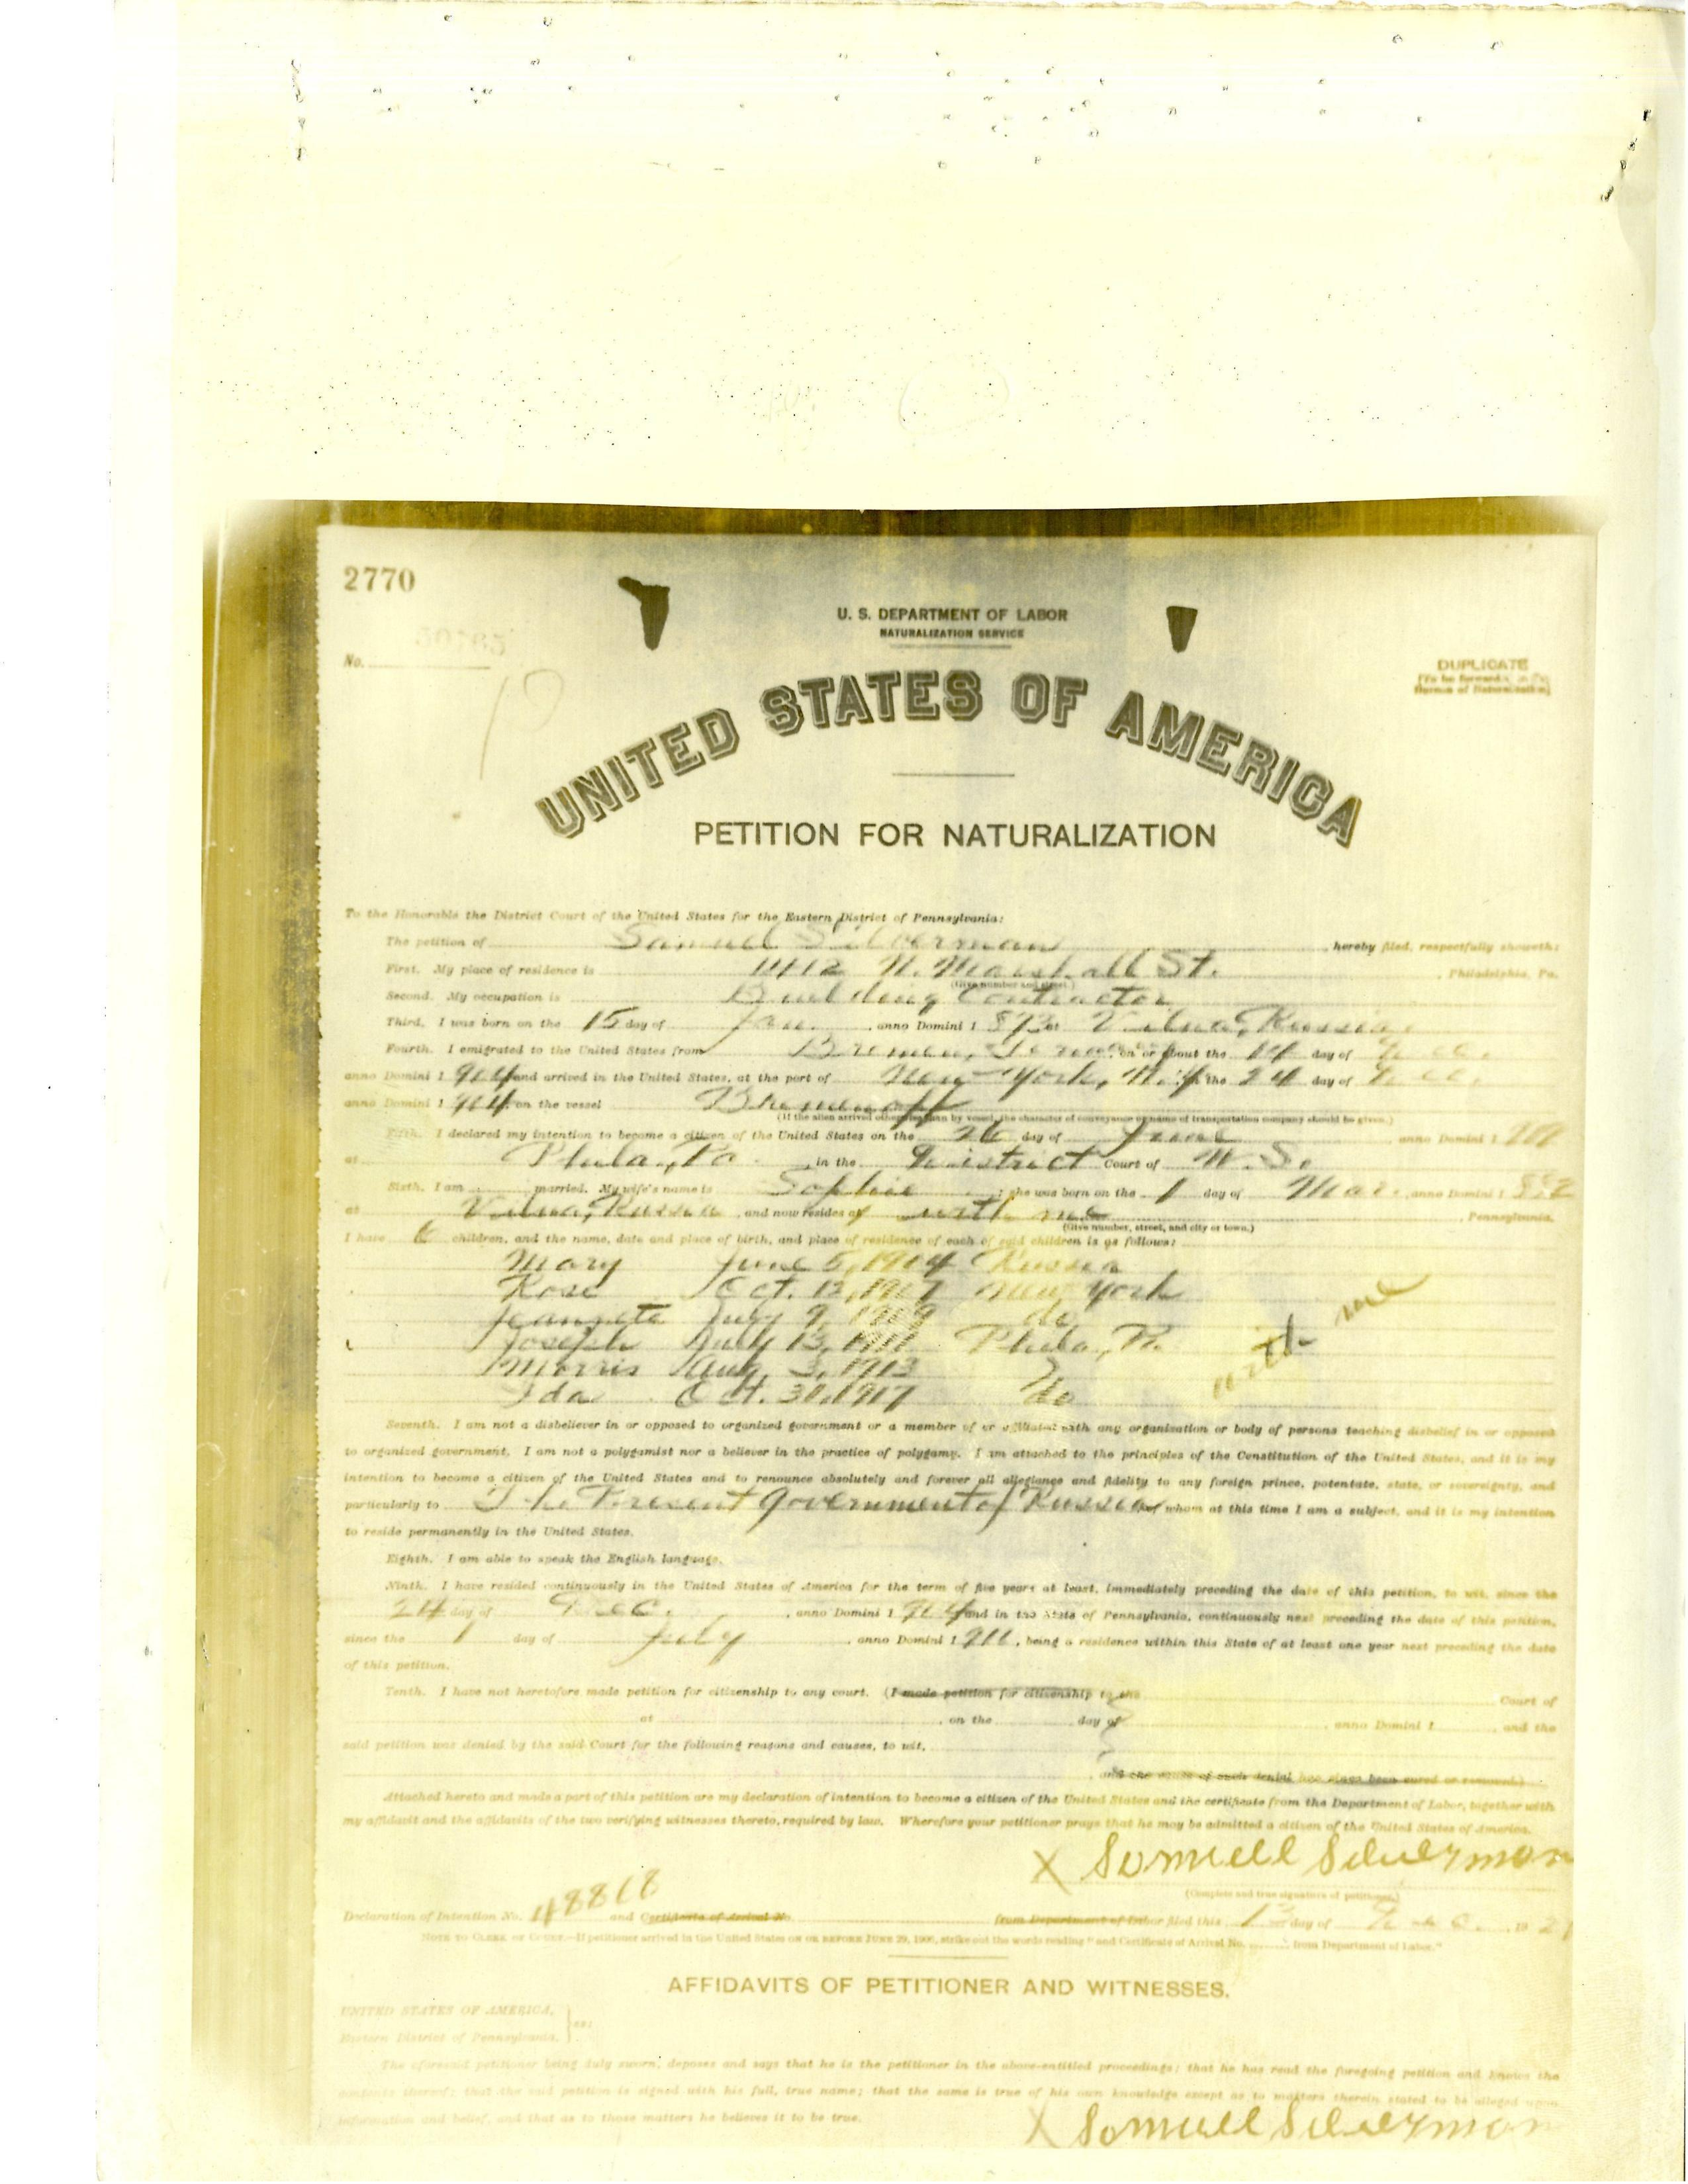 2770
U. S. DEPARTMENT OF LABOR
NATURALIZATION SERVICE
No.
DUPLICATE
[To be forwarded to the
Bureau of Naturalization]
UNITED STATES OF AMERICA
PETITION FOR NATURALIZATION
To the Honorable the District Court of the United States for the Eastern District of Pennsylvania:
The petition of Samuel Silverman, hereby filed, respectfully showeth:
First. My place of residence is N. Marshall St., Philadelphia, Pa.
(Give number and street.)
Second. My occupation is Building Contractor
Third. I was born on the 15 day of Jan., anno Domini 1 873 at Vilna, Russia.
Fourth. I emigrated to the United States from Bremen, Germany, on or about the 14 day of Dec.
anno Domini 1 904 and arrived in the United States, at the port of New York, N.Y. the 24 day of Dec.
anno Domini 1 904 on the vessel
(If the alien arrived otherwise than by vessel, the character of conveyance or name of transportation company should be given.)
Fifth. I declared my intention to become a citizen of the United States on the 26 day of June, anno Domini 1
at Phila., Pa. in the District Court of U. S.
Sixth. I am married. My wife's name is Sophie; she was born on the 1 day of Mar., anno Domini 1 882
at Vilna, Russia, and now resides at with me, Pennsylvania.
(Give number, street, and city or town.)
I have 6 children, and the name, date and place of birth, and place of residence of each of said children is as follows:
Mary June 5, 1904 Russia
Rose Oct. 12, 1907 New York
Jeannete July 9, 1909 do
Joseph July 13, 1911 Phila, Pa. with me
Morris Aug. 3, 1913
Ida Oct. 30, 1917 do
Seventh. I am not a disbeliever in or opposed to organized government or a member of or affiliated with any organization or body of persons teaching disbelief in or opposed
to organized government. I am not a polygamist nor a believer in the practice of polygamy. I am attached to the principles of the Constitution of the United States, and it is my
intention to become a citizen of the United States and to renounce absolutely and forever all allegiance and fidelity to any foreign prince, potentate, state, or sovereignty, and
particularly to The Present Government of Russia, of whom at this time I am a subject, and it is my intention
to reside permanently in the United States.
Eighth. I am able to speak the English language.
Ninth. I have resided continuously in the United States of America for the term of five years at least, immediately preceding the date of this petition, to wit, since the
24 day of Dec., anno Domini 1 904 and in the State of Pennsylvania, continuously next preceding the date of this petition,
since the 1 day of July, anno Domini 1 911, being a residence within this State of at least one year next preceding the date
of this petition.
Tenth. I have not heretofore made petition for citizenship to any court. (I made petition for citizenship to the Court of
at, on the day of, anno Domini 1, and the
said petition was denied by the said Court for the following reasons and causes, to wit,
and the cause of such denial has since been cured or removed.)
Attached hereto and made a part of this petition are my declaration of intention to become a citizen of the United States and the certificate from the Department of Labor, together with
my affidavit and the affidavits of the two verifying witnesses thereto, required by law. Wherefore your petitioner prays that he may be admitted a citizen of the United States of America.
X Somuell Silverman
(Complete and true signature of petitioner.)
Declaration of Intention No. 48868 and Certificate of Arrival No. from Department of Labor filed this 13 day of Dec. 19 21
NOTE TO CLERK OF COURT.—If petitioner arrived in the United States ON OR BEFORE JUNE 29, 1906, strike out the words reading "and Certificate of Arrival No. from Department of Labor."
AFFIDAVITS OF PETITIONER AND WITNESSES.
UNITED STATES OF AMERICA,
Eastern District of Pennsylvania. } ss:
The aforesaid petitioner being duly sworn, deposes and says that he is the petitioner in the above-entitled proceedings; that he has read the foregoing petition and knows the
contents thereof; that the said petition is signed with his full, true name; that the same is true of his own knowledge except as to matters therein stated to be alleged upon
information and belief, and that as to those matters he believes it to be true.
X Somuell Silverman